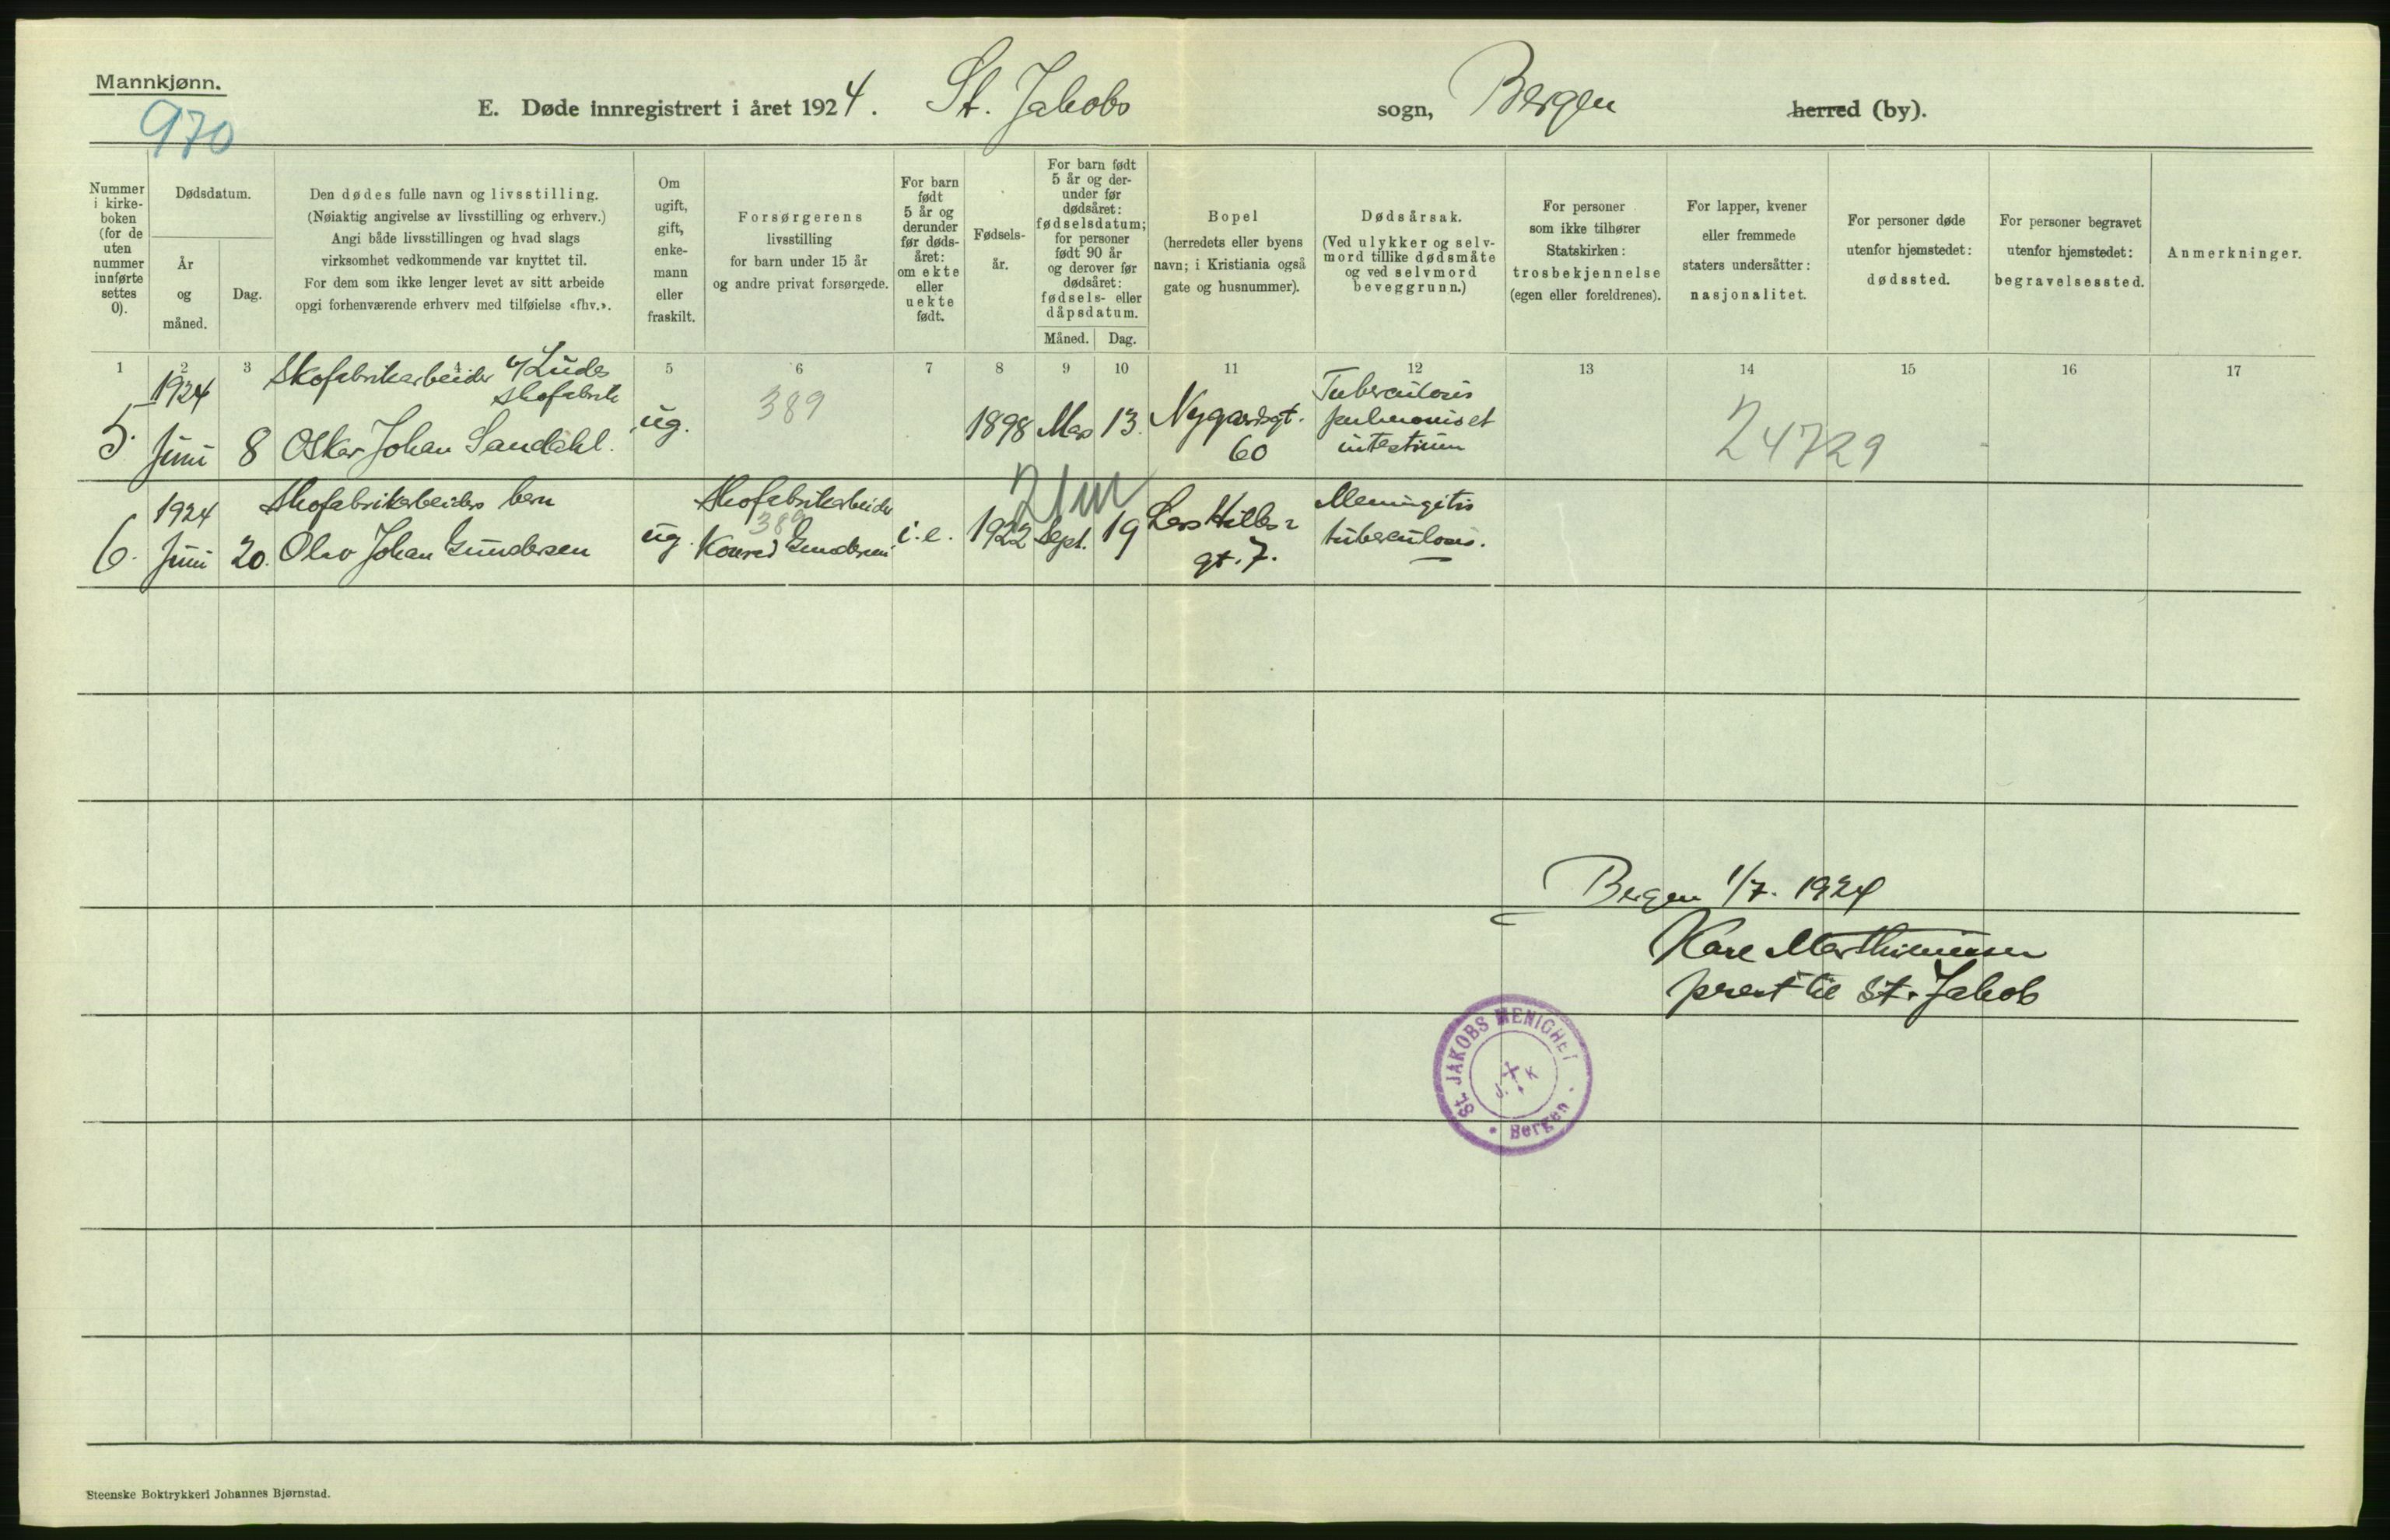 Mannkjønn.
970
E. Døde innregistrert i året 1924. St. Jakobs sogn, Bergen herred (by).
Nummer i kirke- boken (for de uten nummer innførte settes 0).
Dødsdatum.
År og måned.
Dag.
Den dødes fulle navn og livsstilling.
(Nøiaktig angivelse av livsstilling og erhverv.)
Angi både livsstillingen og hvad slags
virksomhet vedkommende var knyttet til.
For dem som ikke lenger levet av sitt arbeide
opgi forhenværende erhverv med tilføielse «fhv.».
Om ugift, gift, enke- mann eller fraskilt.
Forsørgerens
livsstilling
for barn under 15 år
og andre privat forsørgede.
For barn født 5 år og derunder før døds- året: om ekte eller uekte født.
Fødsels- år.
For barn født 5 år og der- under før dødsåret: fødselsdatum; for personer født 90 år og derover før dødsåret: fødsels- eller dåpsdatum.
Måned. Dag.
Bopel
(herredets eller byens
navn; i Kristiania også
gate og husnummer).
Dødsårsak.
(Ved ulykker og selv-
mord tillike dødsmåte
og ved selvmord
beveggrunn.)
For personer
som ikke tilhører
Statskirken:
trosbekjennelse
(egen eller foreldrenes).
For lapper, kvener
eller fremmede
staters undersåtter:
nasjonalitet.
For personer døde
utenfor hjemstedet:
dødssted.
For personer begravet
utenfor hjemstedet:
begravelsessted.
Anmerkninger.
1 2 3 4 5 6 7 8 9 10 11 12 13 14 15 16 17
1924 Skofabrikarbeider v/ Lüdes skofabrik 389 Tuberculosis
5. Juni 8 Oskar Johan Sandahl. ug. 1898 Mars 13. Nygaardsgt. 60 pulmonis et intestinum 24729
1924 Skofabrikarbeiders barn Skofabrikarbeider 389 21m Meningitis
6. Juni 20. Olav Johan Gundersen ug. Konrad Gundersen i.e. 1922 Sept. 19 Lars Hilles gt. 7. tuberculosis.
Bergen 1/7. 1924
Kåre
prest til St. Jakob
ST. JAKOBS MENIGHET
J. K
Bergen
Steenske Boktrykkeri Johannes Bjørnstad.